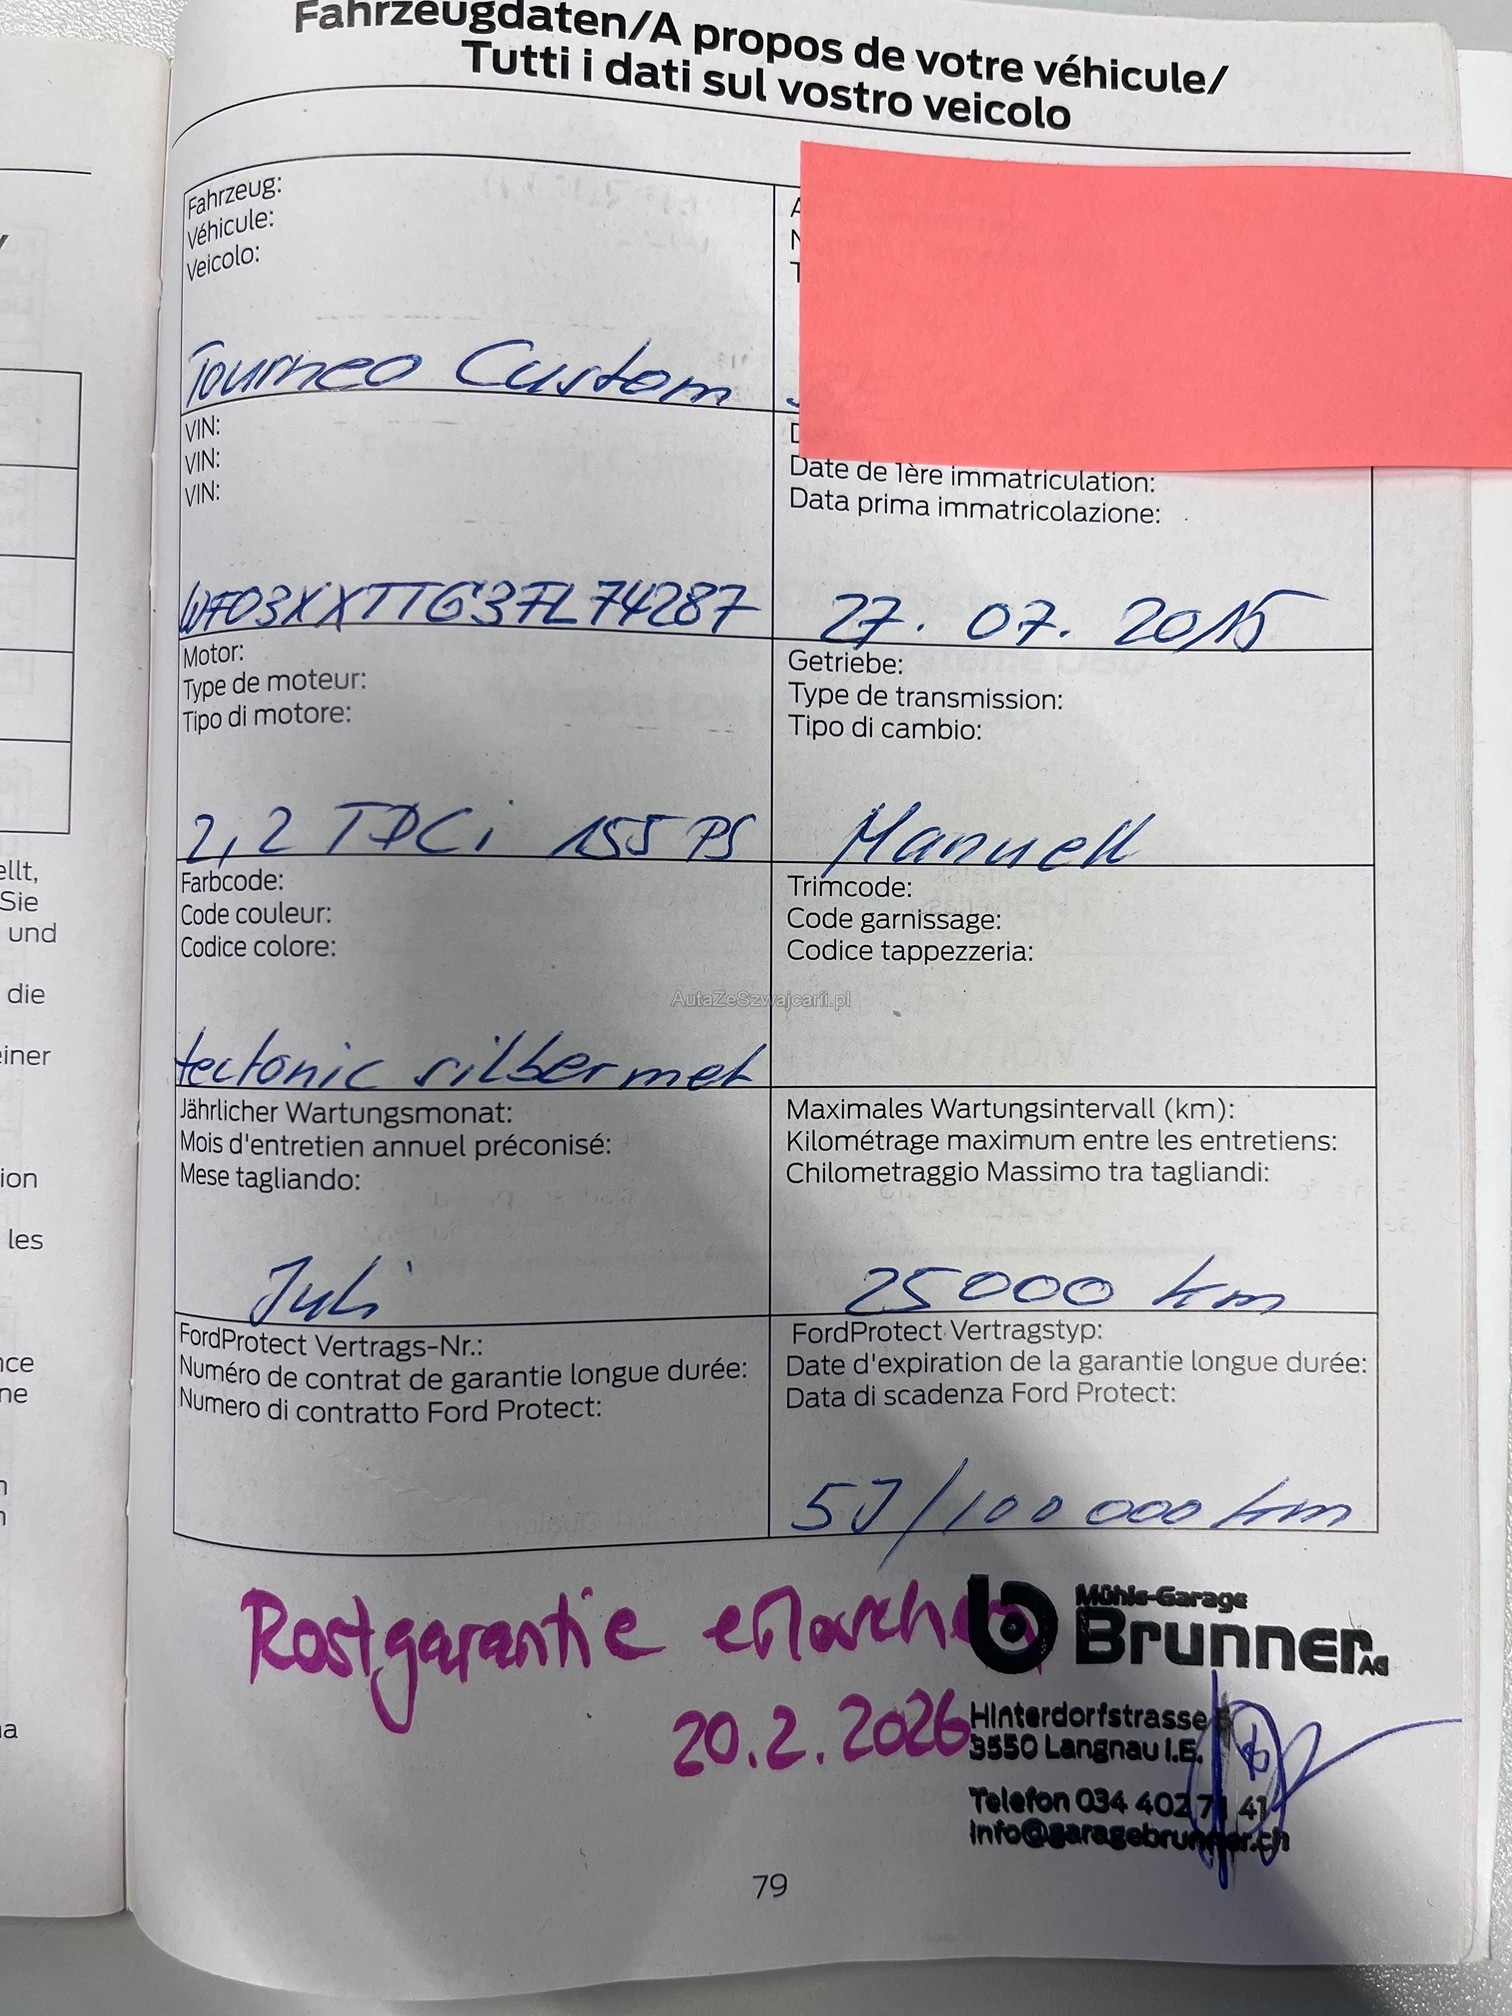 Fahrzeugdaten/A propos de votre véhicule/
Tutti i dati sul vostro veicolo
Fahrzeug:
Véhicule:
Veicolo:
Tourneo Custom
VIN:
VIN:
VIN:
WF03XXTTG3FL74287
Date de 1ère immatriculation:
Data prima immatricolazione:
27. 07. 2015
Motor:
Type de moteur:
Tipo di motore:
2,2 TDCi 155 PS
Getriebe:
Type de transmission:
Tipo di cambio:
Manuell
Farbcode:
Code couleur:
Codice colore:
tectonic silber met
Trimcode:
Code garnissage:
Codice tappezzeria:
AutaZeSzwajcarii.pl
Jährlicher Wartungsmonat:
Mois d'entretien annuel préconisé:
Mese tagliando:
Juli
Maximales Wartungsintervall (km):
Kilométrage maximum entre les entretiens:
Chilometraggio Massimo tra tagliandi:
25000 km
FordProtect Vertrags-Nr.:
Numéro de contrat de garantie longue durée:
Numero di contratto Ford Protect:
FordProtect Vertragstyp:
Date d'expiration de la garantie longue durée:
Data di scadenza Ford Protect:
5J/100 000 km
Rostgarantie
20.2.2026
Mühle-Garage
Brunner AG
Hinterdorfstrasse
3550 Langnau i.E.
Telefon 034 402 71 41
info@garagebrunner.ch
79
ellt,
Sie
und
die
einer
ion
les